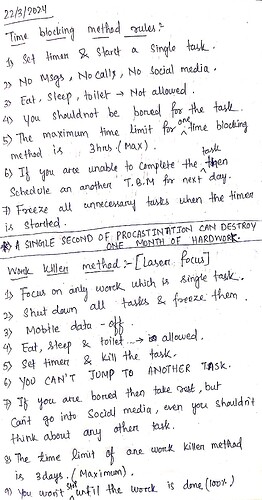 22/3/2024
Time blocking method rules:-
1) Set timer & Start a single task.
2) No Msgs, No calls, No social media.
3) Eat, Sleep, toilet → Not allowed.
4) You shouldnot be bored for the task.
5) The maximum time limit for one time blocking
method is 3hrs. (Max).
6) If you are unable to complete the task then
Schedule an another T.B.M for next day.
7) Freeze all unnecessary tasks when the timer
is started.
A SINGLE SECOND OF PROCASTINATION CAN DESTROY
ONE MONTH OF HARDWORK.
Work Killer method:- [Laser focus]
1) Focus on only work which is single task.
2) Shut down all tasks & freeze them.
3) Mobile data - off.
4) Eat, sleep & toilet → is allowed.
5) Set timer & kill the task.
6) YOU CAN'T JUMP TO ANOTHER TASK.
7) If you are bored then take rest, but
Can't go into Social media, even you shouldn't
think about any other task.
8) The time limit of one work killer method
is 3days. (Maximum).
9) You won't until the work is done (100%)